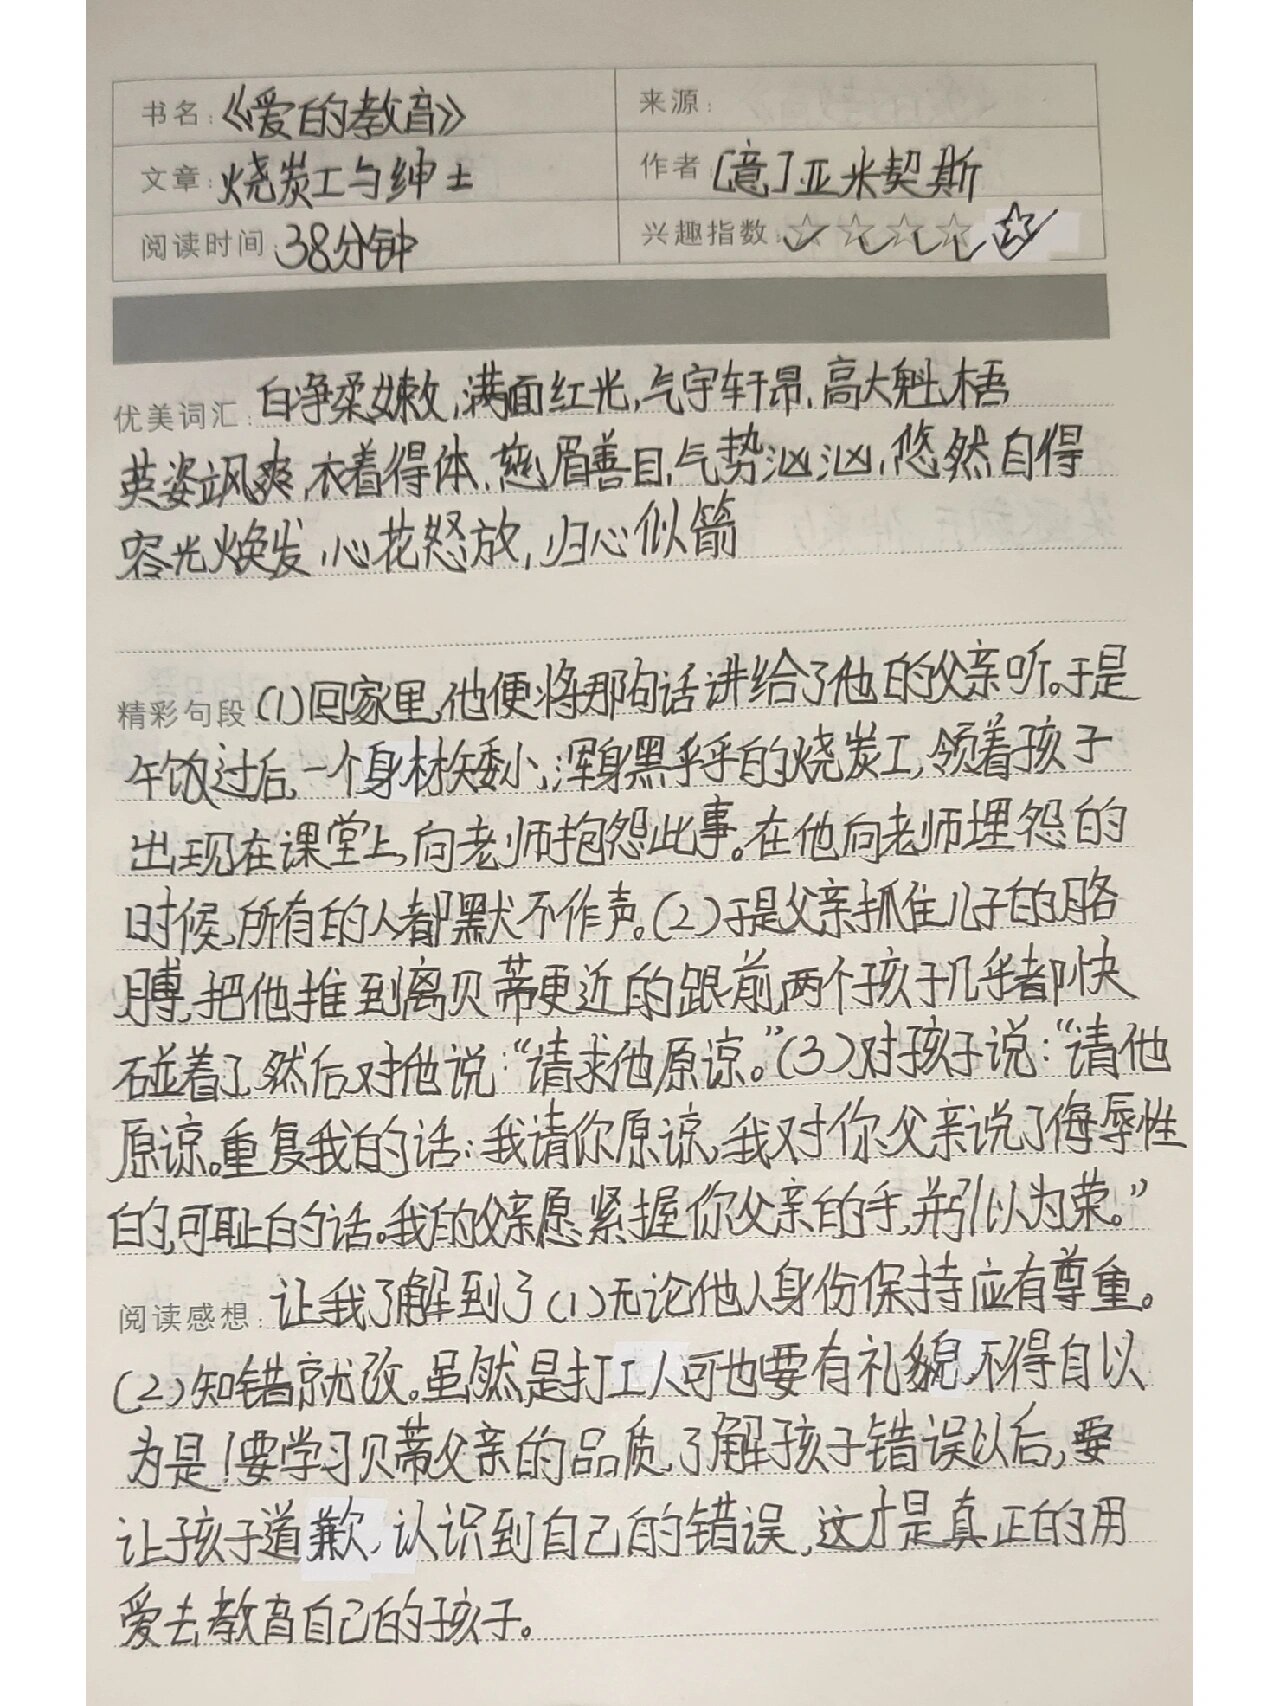 书名：《爱的教育》 来源：
文章：烧炭工与绅士 作者：[意]亚米契斯
阅读时间：38分钟 兴趣指数：☆☆☆☆☆
优美词汇：白净柔嫩，满面红光，气宇轩昂，高大魁梧
英姿飒爽，衣着得体，慈眉善目，气势汹汹，悠然自得
容光焕发，心花怒放，归心似箭
精彩句段：(1)回家里，他便将那句话讲给了他的父亲听。于是
午饭过后，一个身材矮小，浑身黑乎乎的烧炭工，领着孩子
出现在课堂上，向老师抱怨此事。在他向老师埋怨的
时候，所有的人都默不作声。(2)于是父亲抓住儿子的胳
膊，把他推到离贝蒂更近的跟前，两个孩子几乎都快
碰着了，然后对他说：“请求他原谅。”(3)对孩子说：“请他
原谅。重复我的话：我请你原谅，我对你父亲说了侮辱性
的，可耻的话。我的父亲愿紧握你父亲的手，并引以为荣。”
阅读感想：让我了解到了(1)无论他人身份保持应有尊重。
(2)知错就改。虽然是打工人可也要有礼貌，不得自以
为是！要学习贝蒂父亲的品质，了解孩子错误以后，要
让孩子道歉，认识到自己的错误，这才是真正的用
爱去教育自己的孩子。